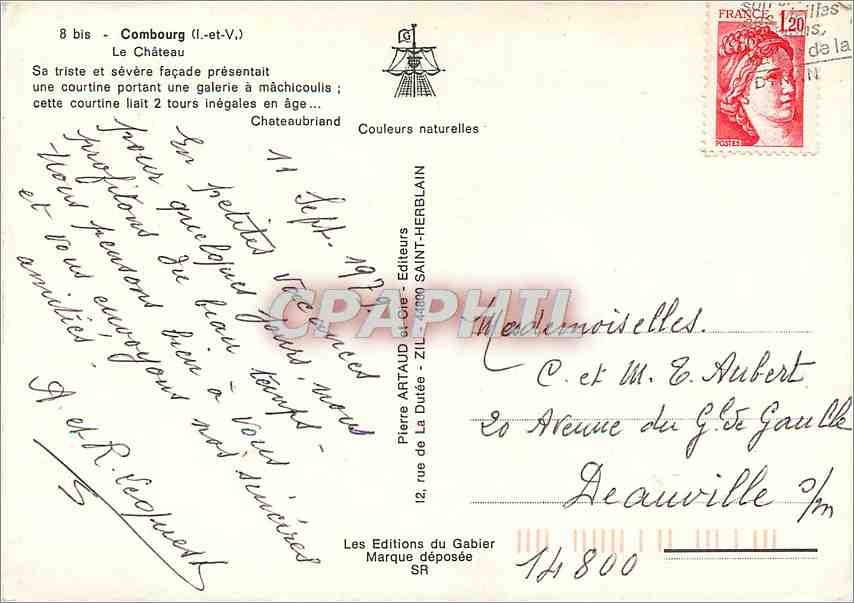 8 bis - Combourg (I.-et-V.)
Le Château
Sa triste et sévère façade présentait
une courtine portant une galerie à mâchicoulis ;
cette courtine liait 2 tours inégales en âge...
Chateaubriand
Couleurs naturelles
11 Sept. 1979.
En petites vacances
pour quelques jours. nous
profitons du beau temps -
Nous pensons bien à vous
et vous envoyons nos sincères
amitiés.
A. et R.
Pierre ARTAUD et Cie - Editeurs
12, rue de La Dutée - ZIL - 44800 SAINT-HERBLAIN
Les Editions du Gabier
Marque déposée
SR
FRANCE 1,20
POSTES
de la
CPAPHIL
Mademoiselles.
C. et M. T. Aubert
20 Avenue du Gl de Gaulle
Deauville s/m
14800